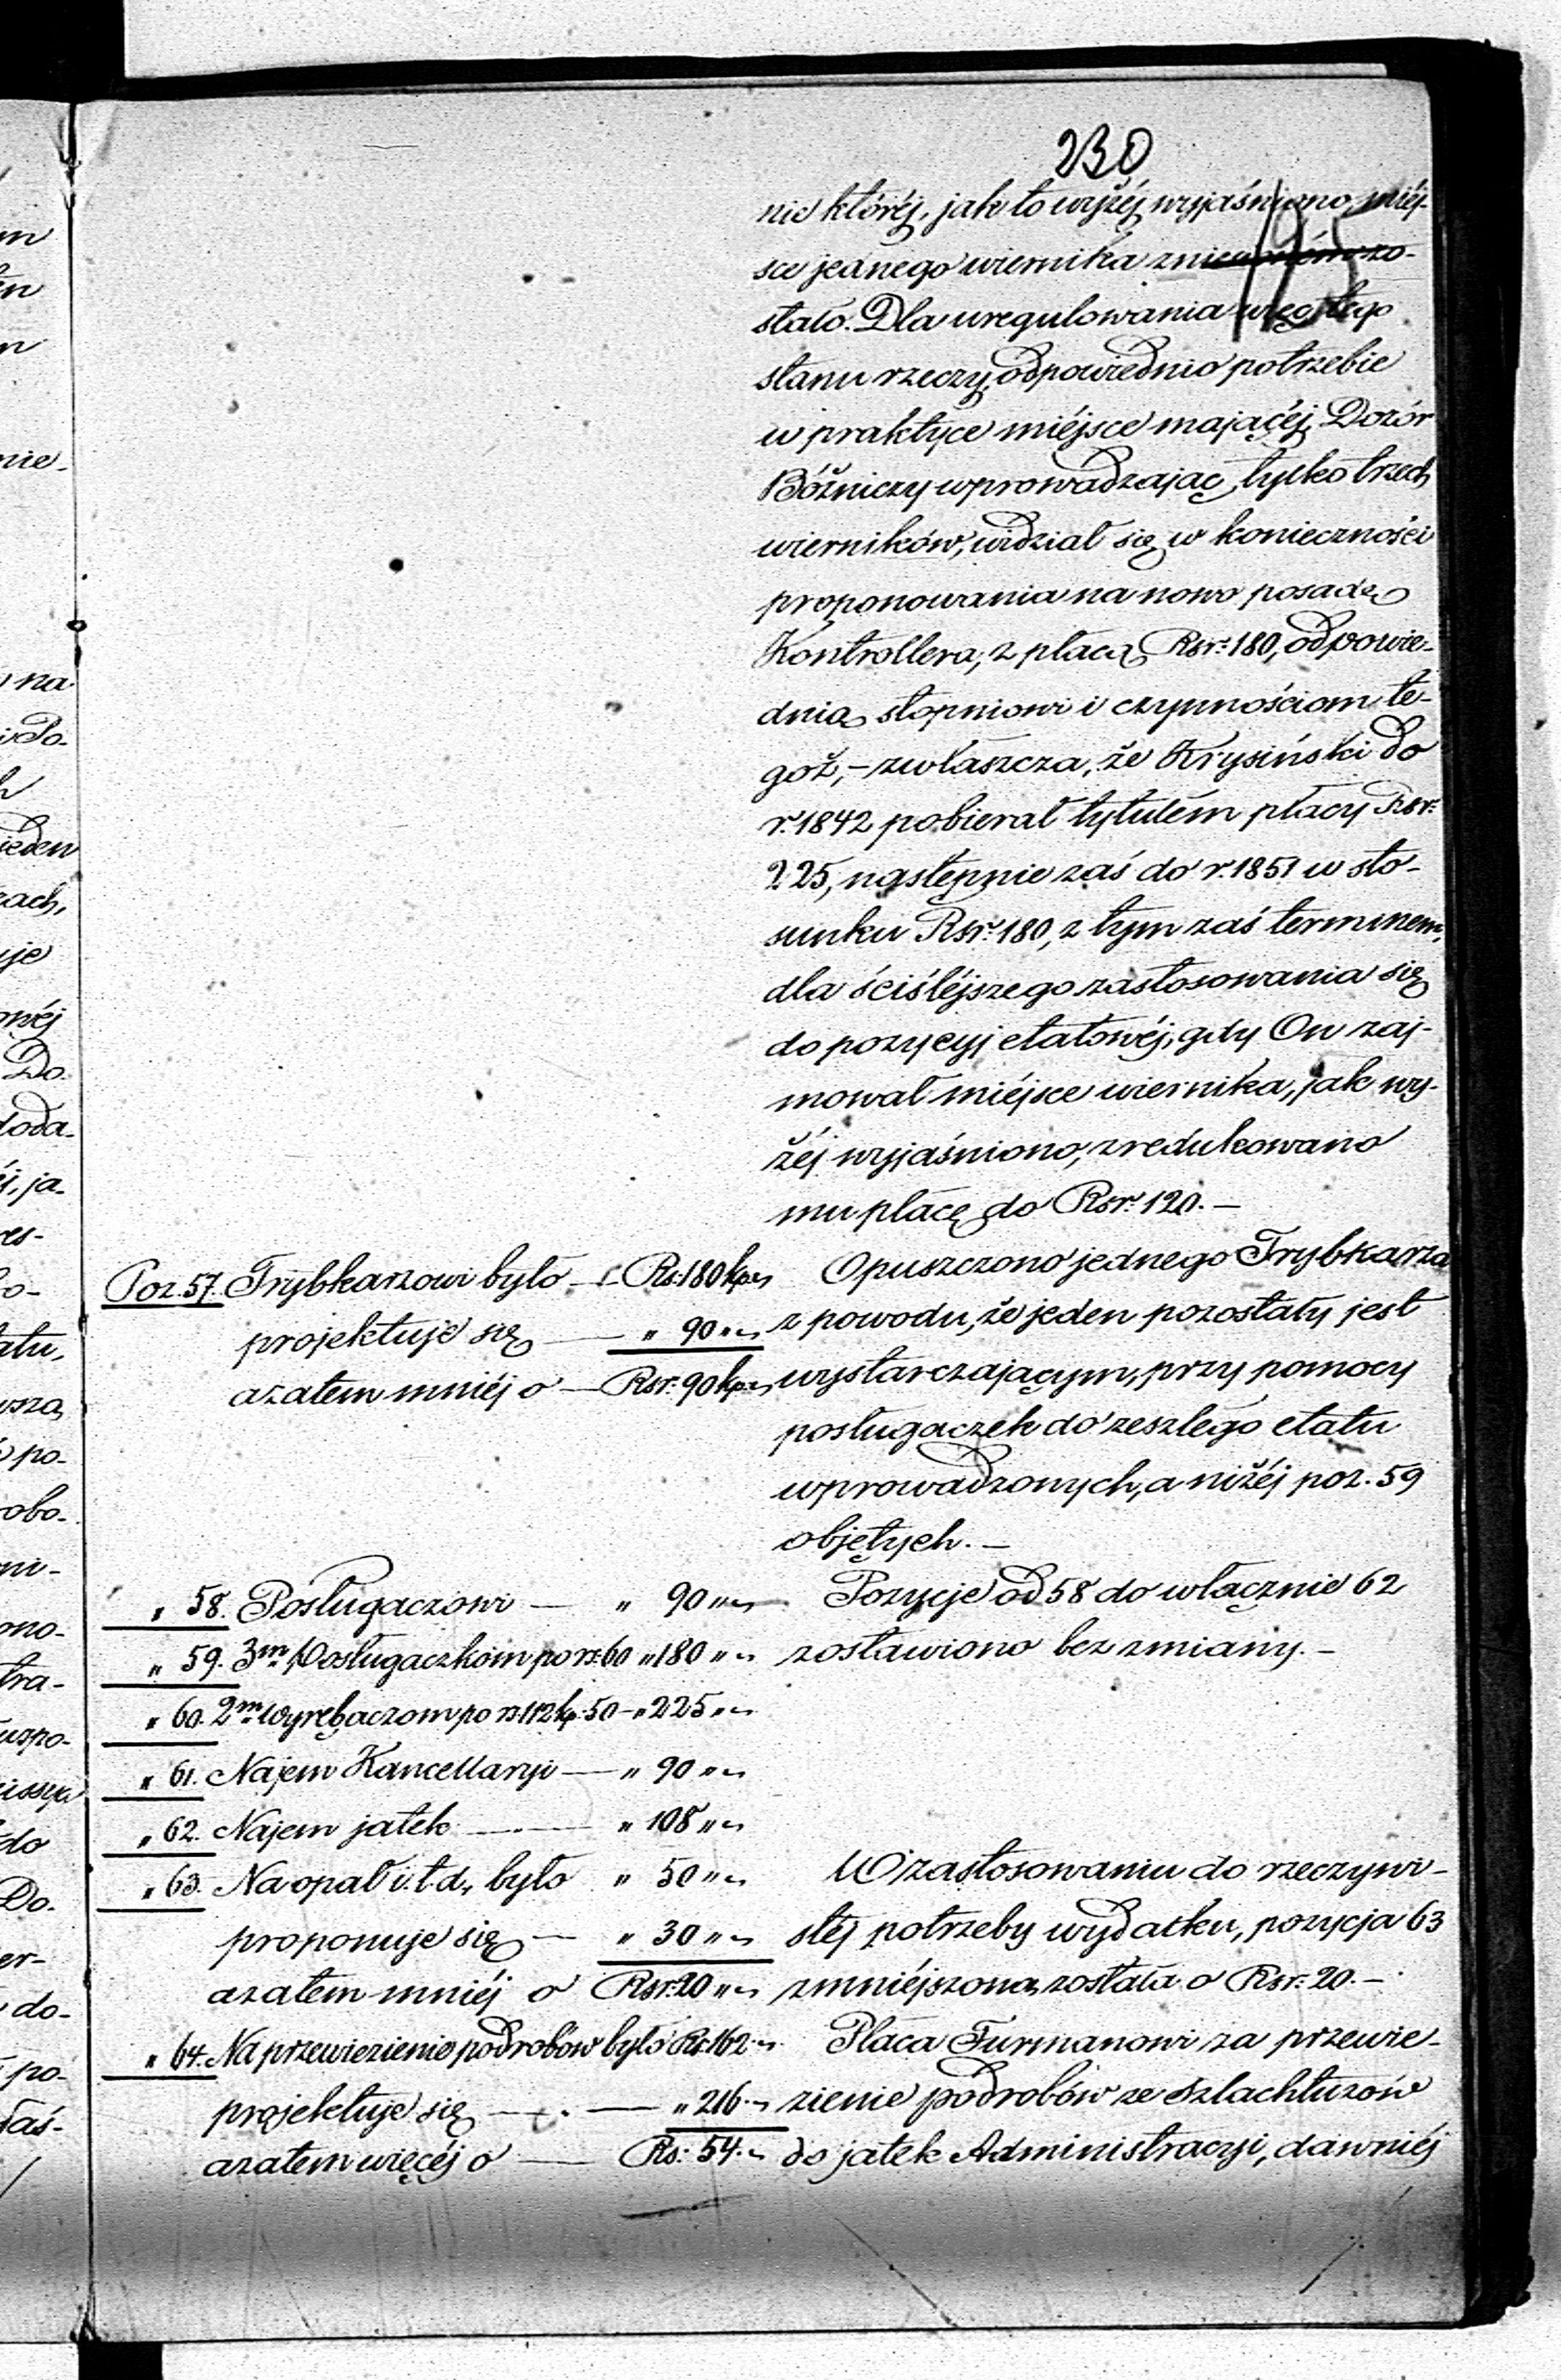 230
195
nie któréj, jak to wyżéj wyjaśniono, miéj-
sce jednego wiernika zo-
stało. Dla uregulowania więc tego
stanu rzeczy, odpowiednio potrzebie
w praktyce miéjsce mającéj, Dozór
Bóżniczy wprowadzając tylko trzech
wierników, widział się w konieczności
proponowania na nowo posadę
Kontrollera, z płacą Rsr. 180, odpowie-
dnią stopniowi i czynnościom te-
goż, – zwłaszcza, że Krysiński do
r. 1842 pobierał tytułem płacy Rsr.
225, następnie zaś do r. 1851 w sto-
sunku Rsr. 180, z tym zaś terminem,
dla ściśléjszego zastosowania się
do pozycyj etatowéj, gdy On zaj-
mował miéjsce wiernika, jak wy-
żéj wyjaśniono, zredukowano
mu płacę do Rsr. 120. –
Poz. 57. Trybkarzowi było – Rs. 180 kp „
projektuje się — „ 90 „ „
azatem mniéj o — Rsr. 90 kp „
Opuszczono jednego Trybkarza
z powodu, że jeden pozostały jest
wystarczającym, przy pomocy
posługaczek do zeszłego etatu
wprowadzonych, a niżéj poz. 59
objętych. –
„ 58. Posługaczowi — „ 90 „ „
„ 59. 3m Posługaczkom po rs. 60 „ 180 „ „
„ 60. 2m Wyrębaczom po rs 112 kp. 50 – „ 225 „ „
„ 61. Najem Kancellaryi — „ 90 „ „
„ 62. Najem jatek — „ 108 „ „
Pozycje od 58 do włącznie 62
zostawiono bez zmiany. –
„ 63. Na opał i. t. d., było „ 50 „ „
proponuje się — „ 30 „ „
azatem mniéj o Rsr. 20 „ „
W zastosowaniu do rzeczywi-
stéj potrzeby wydatku, pozycja 63
zmniéjszoną została o Rsr. 20. –
„ 64. Na przewiezienie podrobów było Rs. 162 „
projektuje się — „ 216 „
azatem więcéj o — Rs. 54 „
Płaca Furmanowi za przewie-
zienie podrobów ze szlachtuzów
do jatek Administracyi, dawniéj